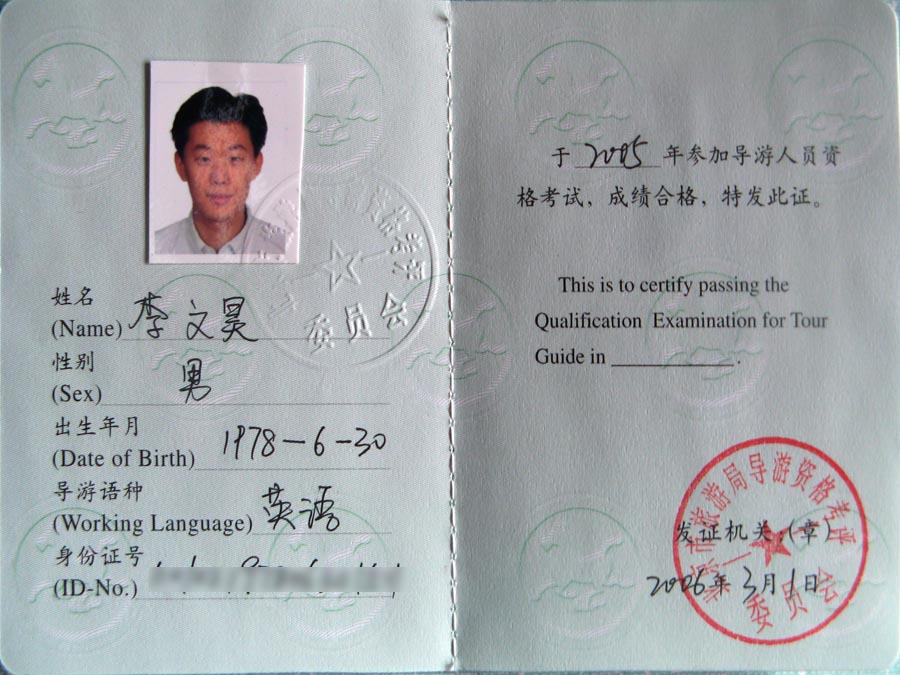 姓名
(Name) 李文昊
性别
(Sex) 男
出生年月
(Date of Birth) 1978-6-30
导游语种
(Working Language) 英语
身份证号
(ID-No.)
委员会
于 2005 年参加导游人员资
格考试，成绩合格，特发此证。
This is to certify passing the
Qualification Examination for Tour
Guide in ____________.
市旅游局导游资格考评
委员会
发证机关：(章)
2006年3月1日